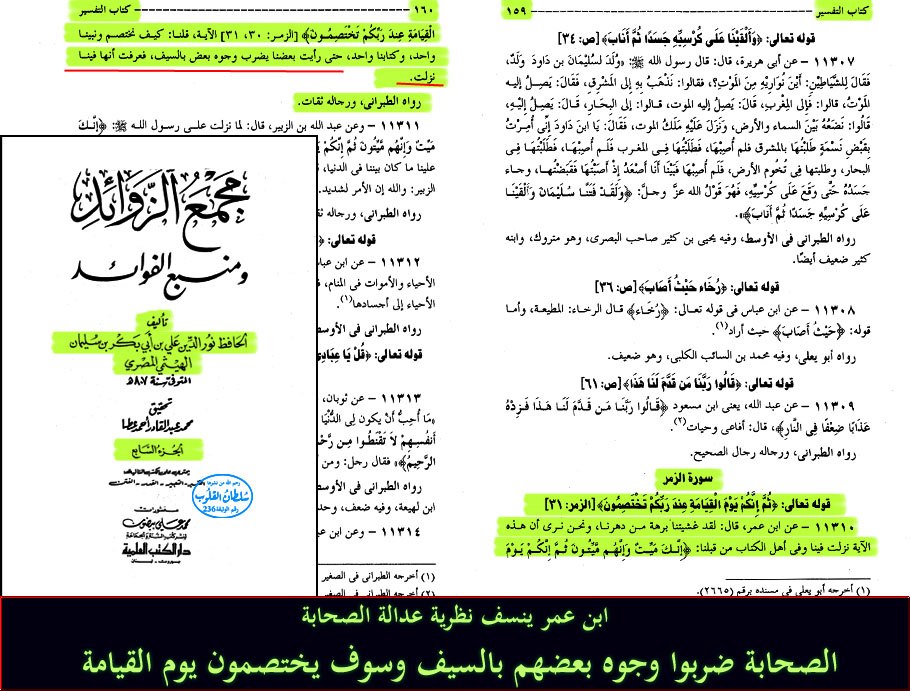 كتاب التفسير ١٥٩
قوله تعالى: ﴿وَأَلْقَيْنَا عَلَى كُرْسِيِّهِ جَسَدًا ثُمَّ أَنَابَ﴾ [ص: ٣٤]
١١٣٠٧ – عن أبى هريرة، قال: قال رسول الله ﷺ: «وُلِدَ لسُلَيْمَانَ بن دَاوُدَ وَلَدٌ،
فَقَالَ لِلشَّيَاطِينِ: أَيْنَ نُوَارِيهِ مِنَ الْمَوْتِ؟، فقالوا: نَذْهَبُ بِهِ إلى الْمَشْرِقِ، فَقَالَ: يَصِلُ إليه
الْمَوْتُ، قالوا: فَإِلى الْمَغْرِبِ، قَالَ: يَصِلُ إلَيْهِ الموت، قـالـوا: إلى البحَـارِ، قـال: يَصِلُ إِلَيْهِ،
قالُوا: نَضَعُهُ بَيْنَ السماء والأرض، وَنَزَلَ عَلَيْهِ مَلَكُ الموت، فَقَالَ: يَا ابنَ دَاوُدَ إِنِّى أُمِرْتُ
بِقَبْضِ نَسْمَةٍ طَلَبْتُهَا بالمشرق فلم أُصِبْهَا، فَطَلَبْتُهَا فِى المغرب فَلَـم أُصِبْهَـا، فَطَلَبْتُهَـا فِى
البحار، وطلبتها فى تُخُومِ الأرض، فَلَمْ أُصِبْهَا فَبَيْنَا أَنَا أَصْعَدُ إِذْ أَصَبْتُهَا فَقَبَضْتُهَـا، وجـاء
جَسَدُهُ حَتَّى وَقَعَ عَلَى كُرْسِيِّهِ، فَهُوَ قَوْلُ الله عزَّ وجلَّ: ﴿وَلَقَدْ فَتَنَّا سُلَيْمَانَ وَأَلْقَيْنَا
عَلَى كُرْسِيِّهِ جَسَدًا ثُمَّ أَنَابَ﴾».
رواه الطبرانى فى الأوسط، وفيه يحيى بن كثير صاحب البصرى، وهو متروك، وابنه
كثير ضعيف أيضًا.
قوله تعالى: ﴿رُخَاءً حَيْثُ أَصَابَ﴾ [ص: ٣٦]
١١٣٠٨ – عن ابن عباس فى قوله تعالى: ﴿رُخَاءً﴾ قال الرخاء: المطيعة، وأما
قوله: ﴿حَيْثُ أَصَابَ﴾ حيث أراد(١).
رواه أبو يعلى، وفيه محمد بن السائب الكلبى، وهو ضعيف.
قوله تعالى: ﴿قَالُوا رَبَّنَا مَن قَدَّمَ لَنَا هَذَا﴾ [ص: ٦١]
١١٣٠٩ – عن عبد الله، يعنى ابن مسعود ﴿قَالُوا رَبَّنَا مَـن قَـدَّمَ لَنَا هَـذَا فَـزِدْهُ
عَذَابًا ضِعْفًا فِى النَّارِ﴾، قال: أفاعى وحيات(٢).
رواه الطبرانى، ورجاله رجال الصحيح.
سورة الزمر
قوله تعالى: ﴿ثُمَّ إِنَّكُمْ يَوْمَ الْقِيَامَةِ عِنْدَ رَبِّكُمْ تَخْتَصِمُونَ﴾ [الزمر: ٣١]
١١٣١٠ – عن ابن عمر، قال: لقد غشيتنا برهة من دهرنا، ونحن نرى أن هذه
الآية نزلت فينا وفى أهل الكتاب من قبلنا: ﴿إِنَّكَ مَيِّتٌ وَإِنَّهُم مَّيِّتُونَ ثُمَّ إِنَّكُمْ يَوْمَ
(١) أخرجه أبو يعلى فى مسنده برقم (٢٦٦٥).
١٦٠ كتاب التفسير
الْقِيَامَةِ عِنْدَ رَبِّكُمْ تَخْتَصِمُونَ﴾ [الزمر: ٣٠، ٣١] الآية، قلنـا: كيـف نختصم ونبينا
واحد، وكتابنا واحد، حتى رأيت بعضنا يضرب وجوه بعض بالسيف، فعرفت أنها فينـا
نزلت.
رواه الطبرانى، ورجاله ثقات.
١١٣١١ – وعن عبد الله بن الزبير، قال: لما نزلت علـى رسـول اللـه ﷺ: ﴿إِنَّـكَ
مَيِّتٌ وَإِنَّهُم مَّيِّتُونَ ثُمَّ إِنَّكُمْ
علينا ما كان بيننا فى الدنيا،
الزبير: والله إن الأمر لشديد.
رواه الطبرانى، ورجاله ثقا
قوله تعالى: ﴿
١١٣١٢ – عن ابن عباس
الأحياء والأموات فى المنام،
الأحياء إلى أجسادها(١).
رواه الطبرانى فى الأوسط
قوله تعالى: ﴿قُلْ يَا عِبَادِىَ
١١٣١٣ – عن ثوبان،
«مَا أُحِبُّ أَنْ يكون لِى الدُّنْيَا
أَنفُسِهِمْ لاَ تَقْنَطُوا مِـن رَّحْـ
الرَّحِيمُ﴾» فقال رجل: ومن
رواه الطبرانى فى الأوسط
ابن لهيعة، وفيه ضعف، وحد
١١٣١٤ – وعن ابن عبـ
(١) أخرجه الطبرانى فى الصغير
(٢) أخرجه الطبرانى فى الصغير
مجمع الزوائد
ومنبع الفوائد
تأليف
الحافظ نور الدين علي بن أبي بكر بن سليمان
الهيثمي المصري
المتوفى سنة ٨٠٧ هـ
تحقيق
محمد عبد القادر أحمد عطا
الجزء السابع
سلطان القلوب
رقم الوثيقة 236
منشورات
محمد علي بيضون
دار الكتب العلمية
بيروت - لبنان
ابن عمر ينسف نظرية عدالة الصحابة
الصحابة ضربوا وجوه بعضهم بالسيف وسوف يختصمون يوم القيامة